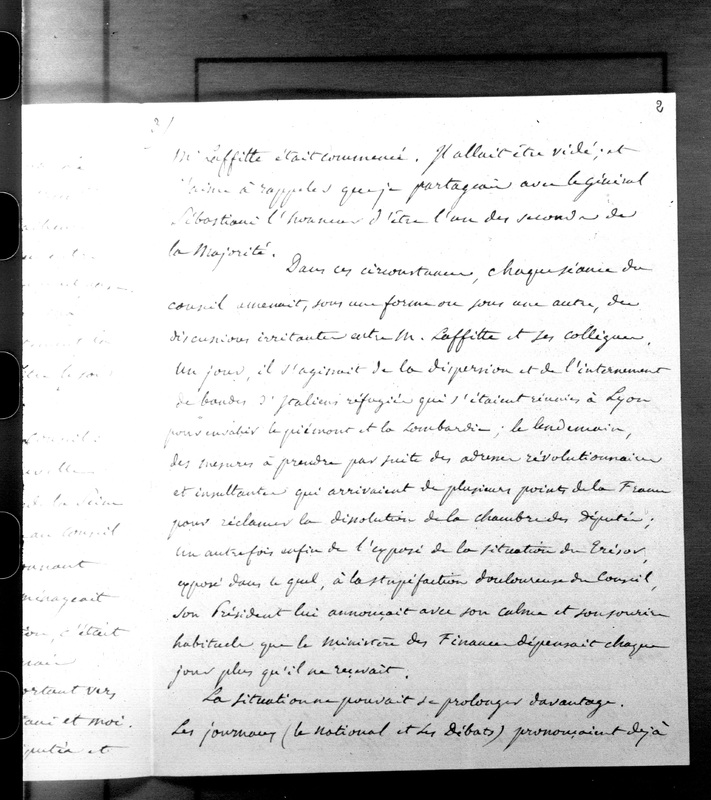 3/
2
Mr Laffitte était commencé. Il allait être vidé; et
j'aime à rappeler que je partageais avec le Général
Sébastiani l'honneur d'être l'un des seconds de
la Majorité.
Dans ces circonstances, chaque séance du
conseil amenait, sous une forme ou sous une autre, des
discussions irritantes entre M. Laffitte et ses collègues.
Un jour, il s'agissait de la dispersion et de l'internement
de bandes d'Italiens réfugiés qui s'étaient réunies à Lyon
pour envahir le piémont et la Lombardie; le lendemain,
des mesures à prendre par suite des adresses révolutionnaires
et insultantes qui arrivaient de plusieurs points de la France
pour réclamer la dissolution de la chambre des Députés;
un autre fois enfin de l'exposé de la situation du Trésor,
exposé dans le quel, à la stupéfaction douloureuse du Conseil,
son Président lui annonçait avec son calme et son sourire
habituels que le ministère des Finances dépensait chaque
jour plus qu'il ne recevait.
La situation ne pouvait se prolonger davantage.
Les journaux (le national et les Débats) prononçaient déjà
de la Seine
au conseil
onnant
ménageait
c'était
ortant vers
tiani et moi.
putés et